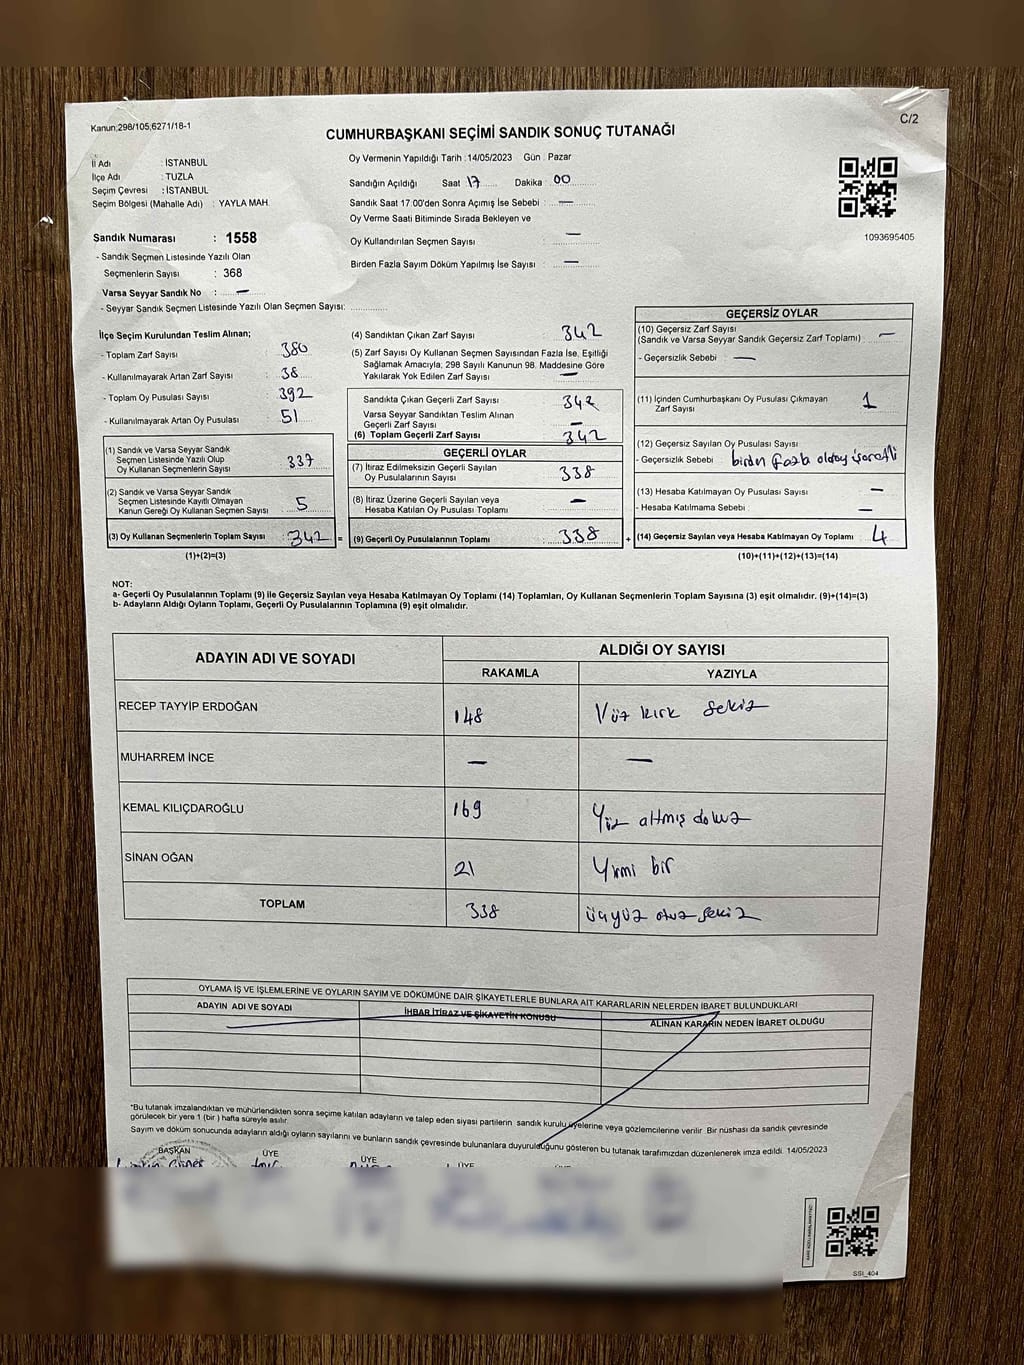 Kanun;298/105;6271/18-1
C/2
CUMHURBAŞKANI SEÇİMİ SANDIK SONUÇ TUTANAĞI
İl Adı : İSTANBUL
İlçe Adı : TUZLA
Seçim Çevresi : İSTANBUL
Seçim Bölgesi (Mahalle Adı) : YAYLA MAH.
Sandık Numarası : 1558
- Sandık Seçmen Listesinde Yazılı Olan
Seçmenlerin Sayısı : 368
Varsa Seyyar Sandık No : —
- Seyyar Sandık Seçmen Listesinde Yazılı Olan Seçmen Sayısı:
Oy Vermenin Yapıldığı Tarih :14/05/2023 Gün : Pazar
Sandığın Açıldığı Saat 17 Dakika 00
Sandık Saat 17.00'den Sonra Açımış İse Sebebi : —
Oy Verme Saati Bitiminde Sırada Bekleyen ve
Oy Kullandırılan Seçmen Sayısı : —
Birden Fazla Sayım Döküm Yapılmış İse Sayısı : —
1093695405
İlçe Seçim Kurulundan Teslim Alınan;
- Toplam Zarf Sayısı : 380
- Kullanılmayarak Artan Zarf Sayısı : 38
- Toplam Oy Pusulası Sayısı : 392
- Kullanılmayarak Artan Oy Pusulası : 51
(1) Sandık ve Varsa Seyyar Sandık
Seçmen Listesinde Yazılı Olup
Oy Kullanan Seçmenlerin Sayısı : 337
(2) Sandık ve Varsa Seyyar Sandık
Seçmen Listesinde Kayıtlı Olmayan
Kanun Gereği Oy Kullanan Seçmen Sayısı : 5
(3) Oy Kullanan Seçmenlerin Toplam Sayısı : 342 =
(1)+(2)=(3)
(4) Sandıktan Çıkan Zarf Sayısı 342
(5) Zarf Sayısı Oy Kullanan Seçmen Sayısından Fazla İse, Eşitliği
Sağlamak Amacıyla; 298 Sayılı Kanunun 98. Maddesine Göre
Yakılarak Yok Edilen Zarf Sayısı —
Sandıkta Çıkan Geçerli Zarf Sayısı 342
Varsa Seyyar Sandıktan Teslim Alınan
Geçerli Zarf Sayısı : —
(6) Toplam Geçerli Zarf Sayısı : 342
GEÇERLİ OYLAR
(7) İtiraz Edilmeksizin Geçerli Sayılan
Oy Pusulalarının Sayısı : 338
(8) İtiraz Üzerine Geçerli Sayılan veya
Hesaba Katılan Oy Pusulası Toplamı : —
(9) Geçerli Oy Pusulalarının Toplamı : 338 +
GEÇERSİZ OYLAR
(10) Geçersiz Zarf Sayısı
(Sandık ve Varsa Seyyar Sandık Geçersiz Zarf Toplamı) : —
- Geçersizlik Sebebi : —
(11) İçinden Cumhurbaşkanı Oy Pusulası Çıkmayan
Zarf Sayısı : 1
(12) Geçersiz Sayılan Oy Pusulası Sayısı
- Geçersizlik Sebebi : birden fazla olarak işaretli
(13) Hesaba Katılmayan Oy Pusulası Sayısı : —
- Hesaba Katılmama Sebebi : —
(14) Geçersiz Sayılan veya Hesaba Katılmayan Oy Toplamı : 4
(10)+(11)+(12)+(13)=(14)
NOT:
a- Geçerli Oy Pusulalarının Toplamı (9) ile Geçersiz Sayılan veya Hesaba Katılmayan Oy Toplamı (14) Toplamları, Oy Kullanan Seçmenlerin Toplam Sayısına (3) eşit olmalıdır. (9)+(14)=(3)
b- Adayların Aldığı Oyların Toplamı, Geçerli Oy Pusulalarının Toplamına (9) eşit olmalıdır.
ADAYIN ADI VE SOYADI
ALDIĞI OY SAYISI
RAKAMLA YAZIYLA
RECEP TAYYİP ERDOĞAN 148 Yüz kırk sekiz
MUHARREM İNCE — —
KEMAL KILIÇDAROĞLU 169 Yüz altmış dokuz
SİNAN OĞAN 21 Yirmi bir
TOPLAM 338 üçyüz otuz sekiz
OYLAMA İŞ VE İŞLEMLERİNE VE OYLARIN SAYIM VE DÖKÜMÜNE DAİR ŞİKAYETLERLE BUNLARA AİT KARARLARIN NELERDEN İBARET BULUNDUKLARI
ADAYIN ADI VE SOYADI İHBAR İTİRAZ VE ŞİKAYETİN KONUSU ALINAN KARARIN NEDEN İBARET OLDUĞU
*Bu tutanak imzalandıktan ve mühürlendikten sonra seçime katılan adayların ve talep eden siyasi partilerin sandık kurulu üyelerine veya gözlemcilerine verilir. Bir nüshası da sandık çevresinde
görülecek bir yere 1 (bir ) hafta süreyle asılır.
Sayım ve döküm sonucunda adayların aldığı oyların sayılarını ve bunların sandık çevresinde bulunanlara duyurulduğunu gösteren bu tutanak tarafımızdan düzenlenerek imza edildi. 14/05/2023
BAŞKAN ÜYE ÜYE ÜYE
SSI_404